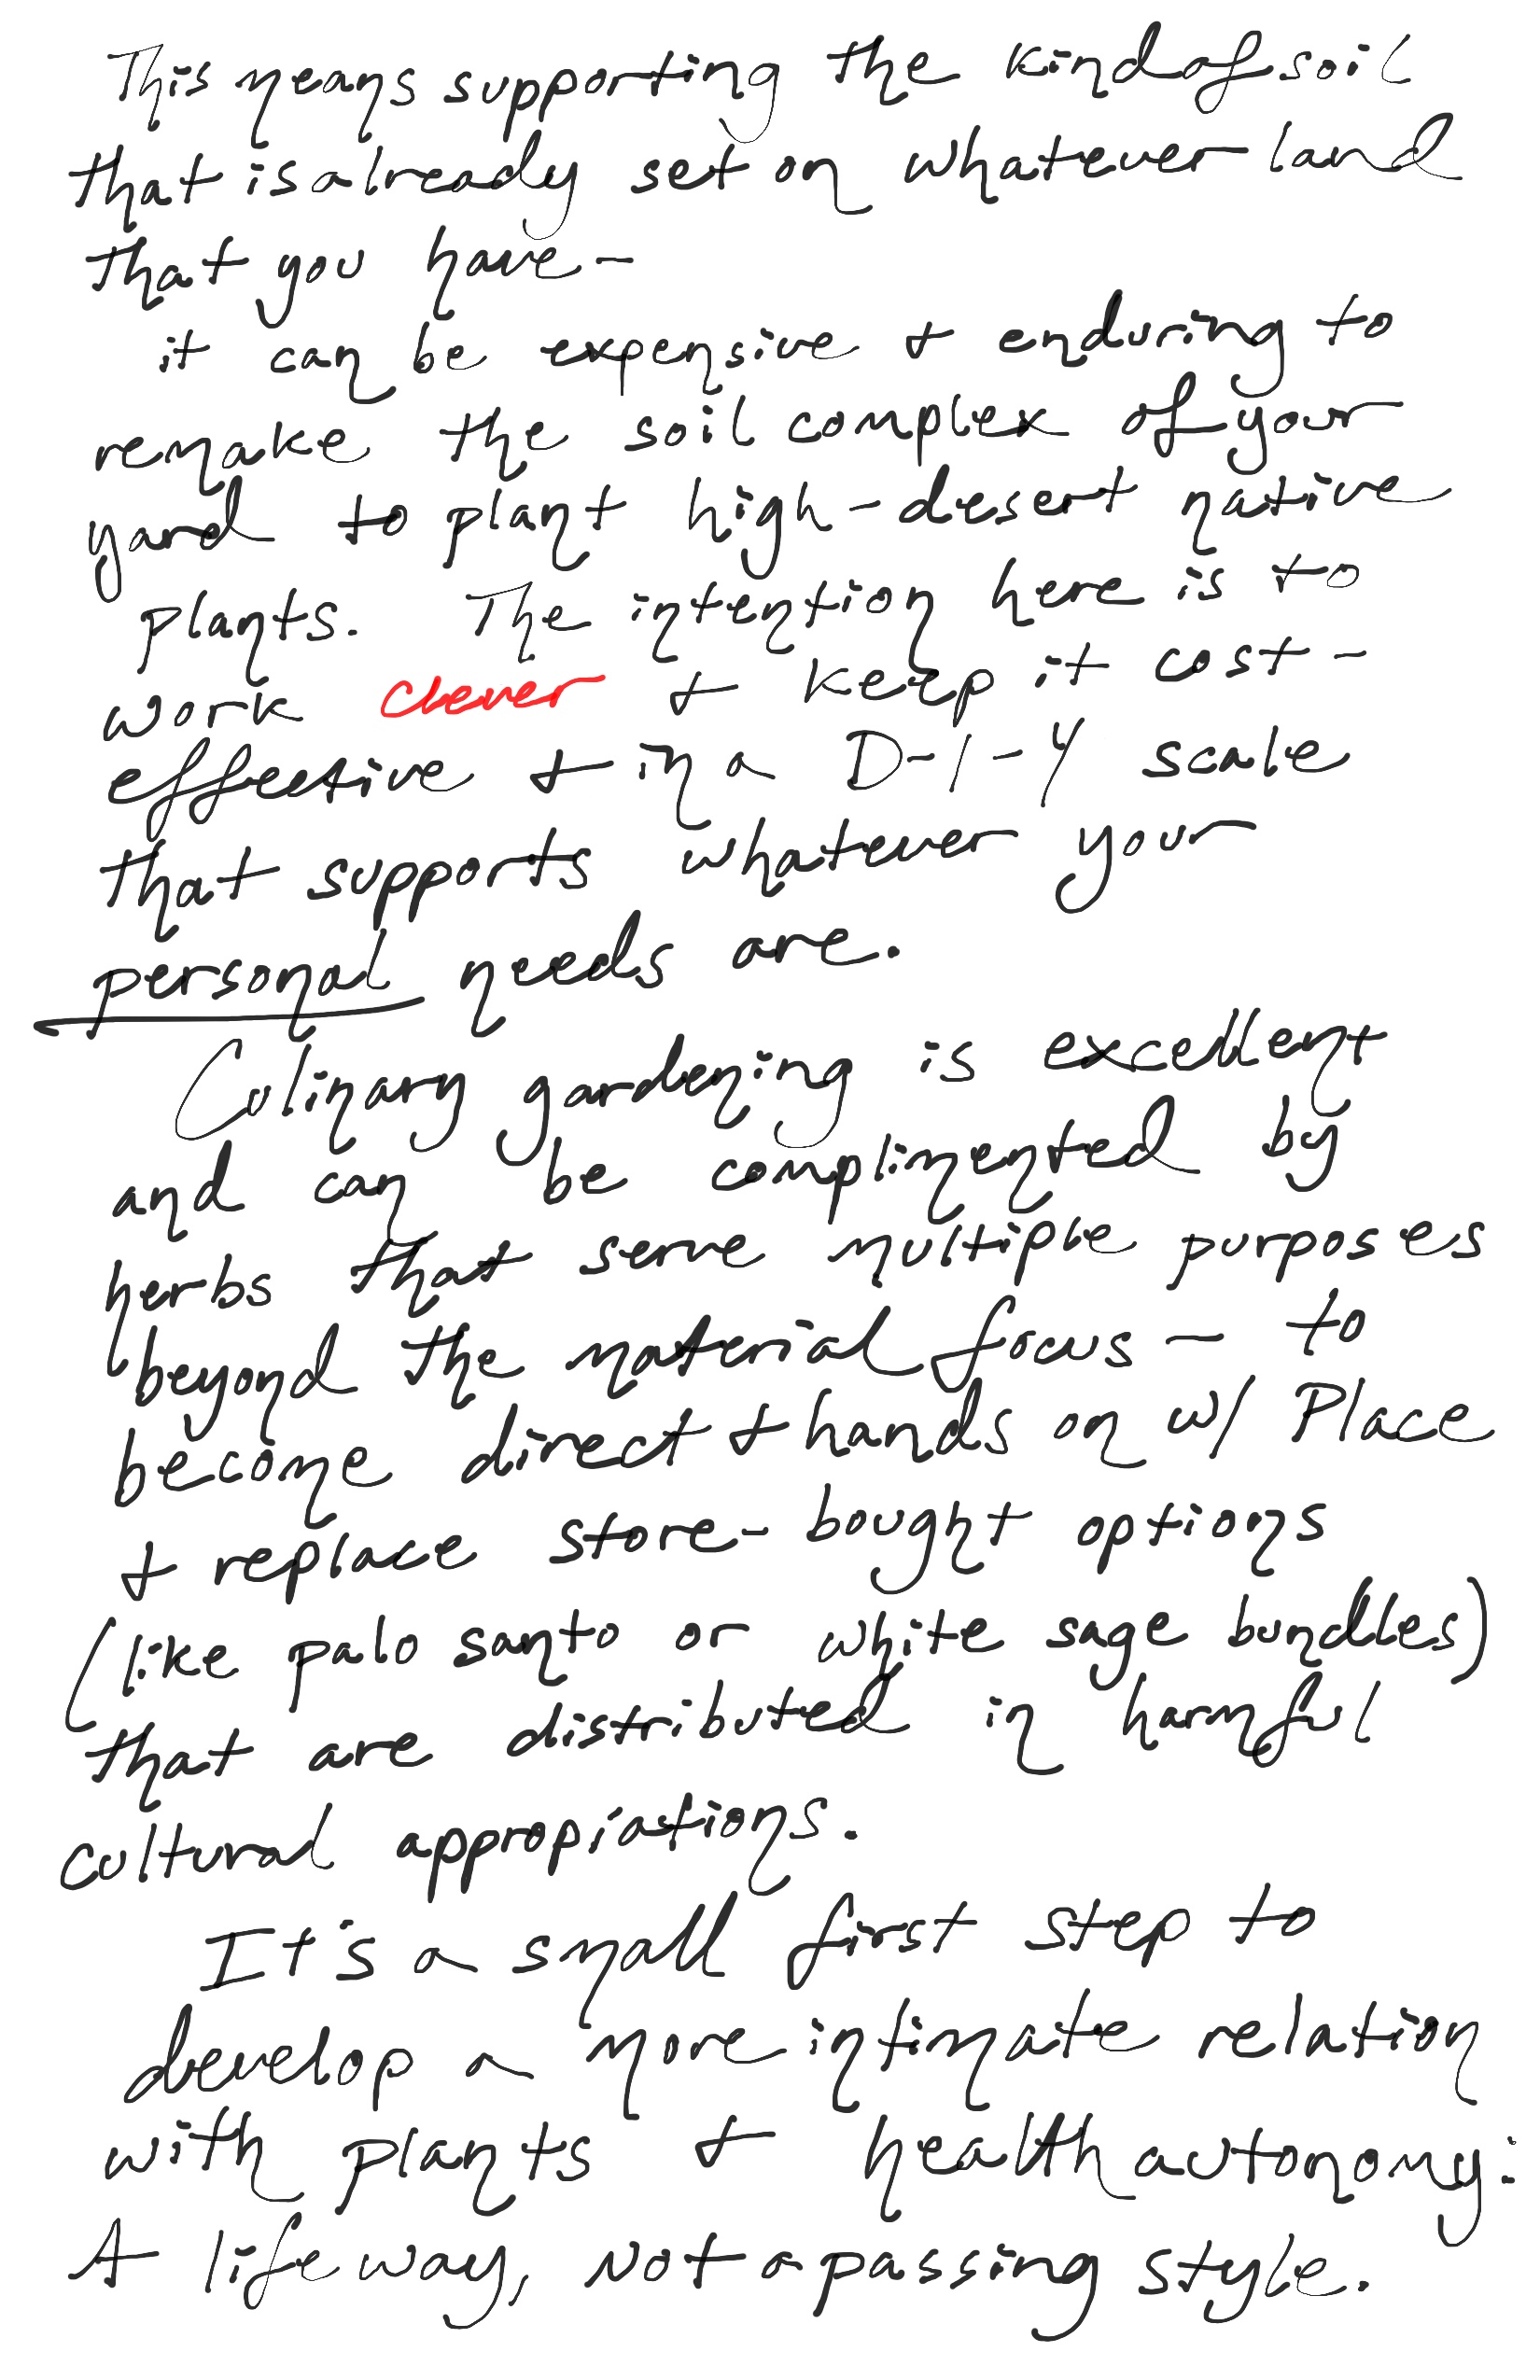 This means supporting the kind of soil
that is already set on whatever land
that you have-
it can be expensive + enduring to
remake the soil complex of your
yard to plant high-desert native
plants. The intention here is to
work clever + keep it cost-
effective + in a D-I-Y scale
that supports whatever your
personal needs are.
Culinary gardening is excellent
and can be complimented by
herbs that serve multiple purposes
beyond the material focus - to
become direct + hands on w/ Place
+ replace store-bought options
(like palo santo or white sage bundles)
that are distributed in harmful
cultural appropiations.
It's a small first step to
develop a more intimate relation
with plants + health autonomy:
A lifeway, not a passing style.